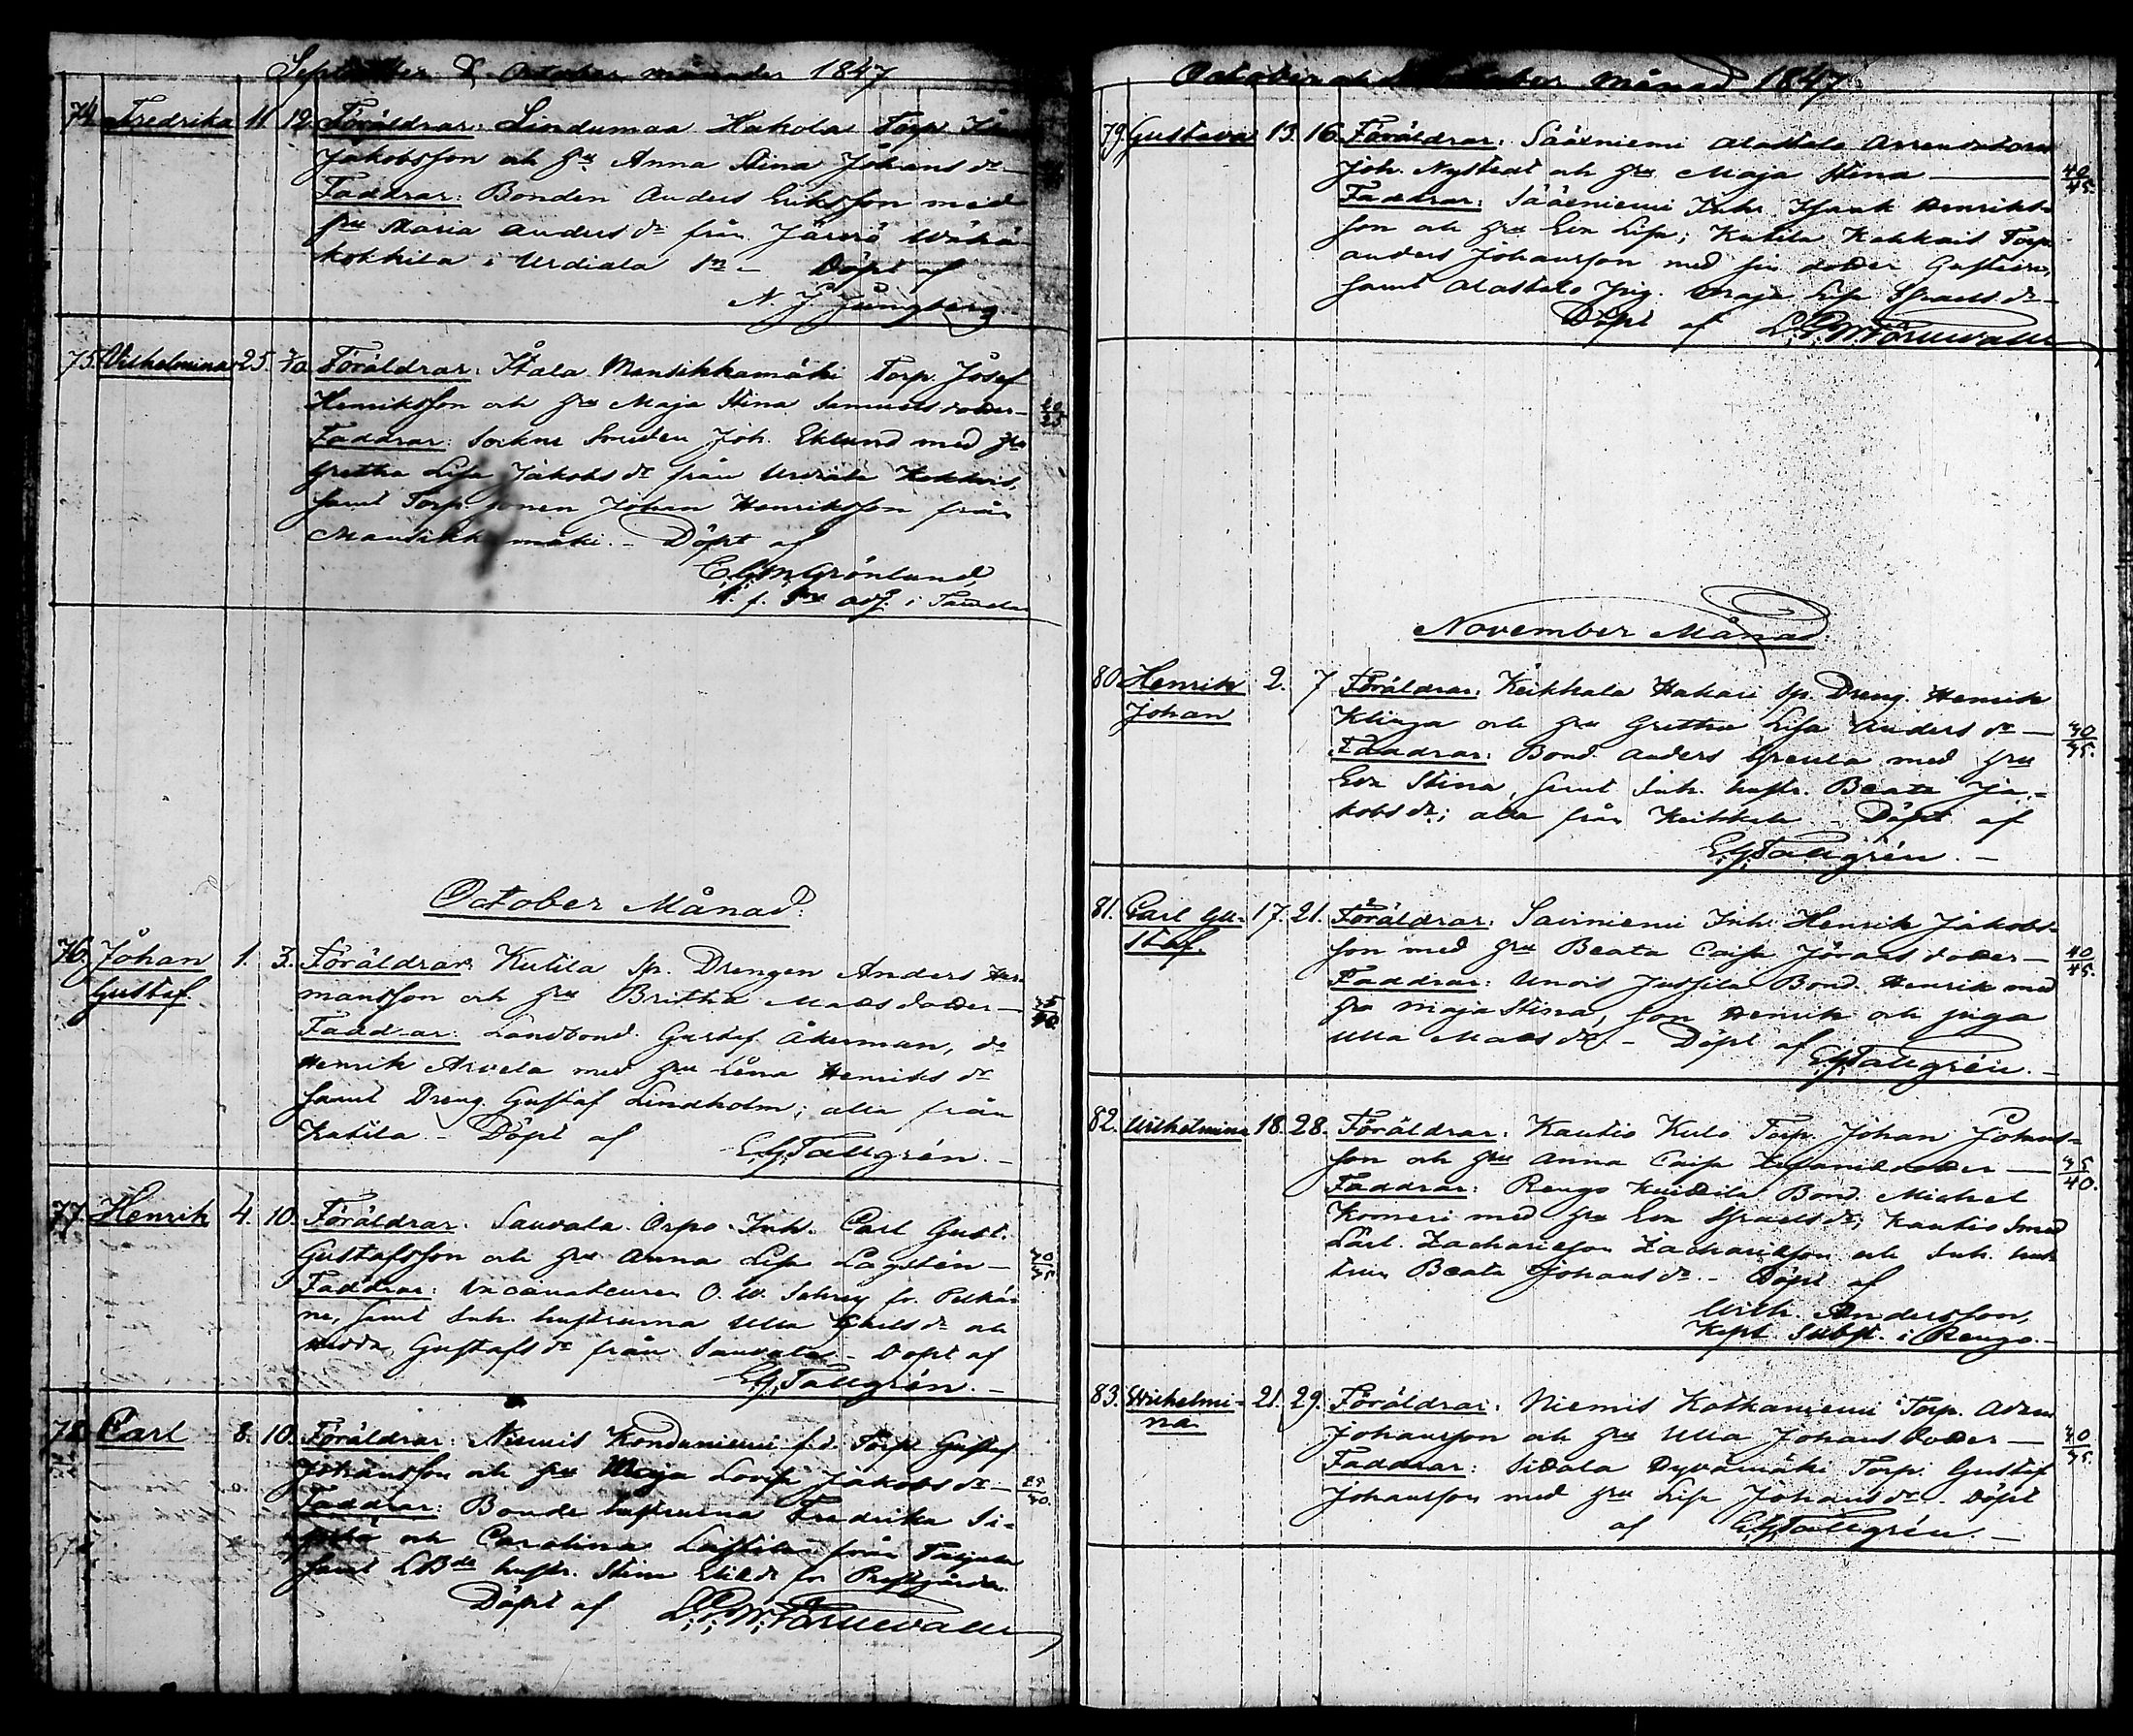 September & October månader 1847
74. Fredrika 11 12 Föräldrar: Lindumaa Hakola Torp.
Jakobsson och hu Anna Stina Johans dr
Faddrar: Bonden Anders Eriksson med
hu Maria Anders dr från
i Urdiala Sn – Döpt af
N. J. Ljungberg
75. Wilhelmina 25. Föräldrar: Ståla Mansikkamäki Torp. Josef
Henriksson och hu Maja Stina Samuelsdotter –
Faddrar: Sockne Smeden Joh. Eklund med hu
Gretha Lisa Jakobs dr från Urdiala
samt Torp. sonen Johan Henriksson från
Mansikkamäki. – Döpt af
C. G. W. Grönlund,
adj. i
October Månad.
76. Johan 1. 3. Föräldrar: Kutila Sp. Drengen Anders Her-
Gustaf mansson och hu Britha Matsdotter – 35/40
Faddrar: Landbond. Gustaf Åkerman, do
Henrik Arvela med hu Lena Henriks dr
samt Dreng. Gustaf Lindholm; alla från
Kutila. – Döpt af E. G. Tallgrén. –
77. Henrik 4. 10. Föräldrar: Sauvala Orpo Inh. Carl Gust.
Gustafsson och hu Anna Lisa Lagstén – 30/35
Faddrar: Vaccinateuren O. W.
ne, samt Inh. hustrurna Ulla Carls dr och
Hedda Gustafs dr från Sauvala – Döpt af
E. G. Tallgrén. –
78. Carl 8. 10. Föräldrar: Niemis Kondaniemi f.d. Torp. Gustaf
Johansson och hu Maja Lovisa Jakobs dr –
Faddrar: Bonde hustrurna Fredrika Si-
och Carolina från
samt LBds hustr. Stina fr. Prestgården.
Döpt af L. P. W. Törnewall
October och November Månad 1847
79. Gustava 13. 16. Föräldrar: Sääxniemi Alastalo Arrendatorn
Joh. Nystedt och hu Maja Stina – 40/45.
Faddrar: Sääxniemi Inh. Isaak Henriks-
son och hu Eva Lisa; Kutila Torp.
Anders Johansson med sin dotter Gustava,
samt Alastalo Pig. Maja Lisa Israels dr –
Döpt af L. P. W. Törnewall
November Månad.
80. Henrik 2. 7 Föräldrar: Keikkala Hakari Sp. Dreng. Henrik
Johan Klinga och hu Gretha Lisa Anders dr – 30/35.
Faddrar: Bond. Anders Greula med hu
Eva Stina, samt Inh. hustr. Beata Ja-
kobs dr; alla från Keikkala – Döpt af
E. G. Tallgrén. –
81. Carl Gu- 17. 21. Föräldrar: Saviniemi Inh. Henrik Jakobs-
staf. son med hu Beata Caisa Jöransdotter – 40/45.
Faddrar: Unois Jussila Bond. Henrik med
hu Maja Stina, son Henrik och piga
Ulla Mats dr. – Döpt af E. G. Tallgrén. –
82. Wilhelmina 18. 28. Föräldrar: Kautio Kulo Torp. Johan Johans-
son och hu Anna Caisa – 35/40.
Faddrar: Rengo Kuidila Bond. Michel
Komeri med hu Eva Israels dr; Kautio Smed
Lärl. Zacharias Zachariasson och Inh. hus-
trun Beata Johans dr. – Döpt af
Wilh. Andersson,
Kapl. Subst. i Rengo. –
83. Wilhelmi- 21. 29. Föräldrar: Niemis Kotkaniemi Torp. Adam
na Johansson och hu Ulla Johansdotter – 30/35.
Faddrar: Sidala Torp. Gustaf
Johansson med hu Lisa Johans dr – Döpt
af E. G. Tallgrén. –